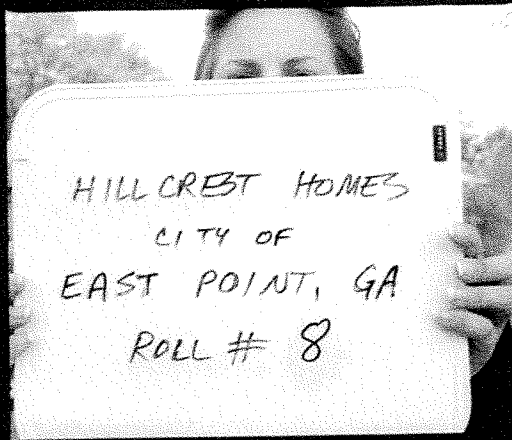 HILLCREST HOMES
CITY OF
EAST POINT, GA
ROLL # 8